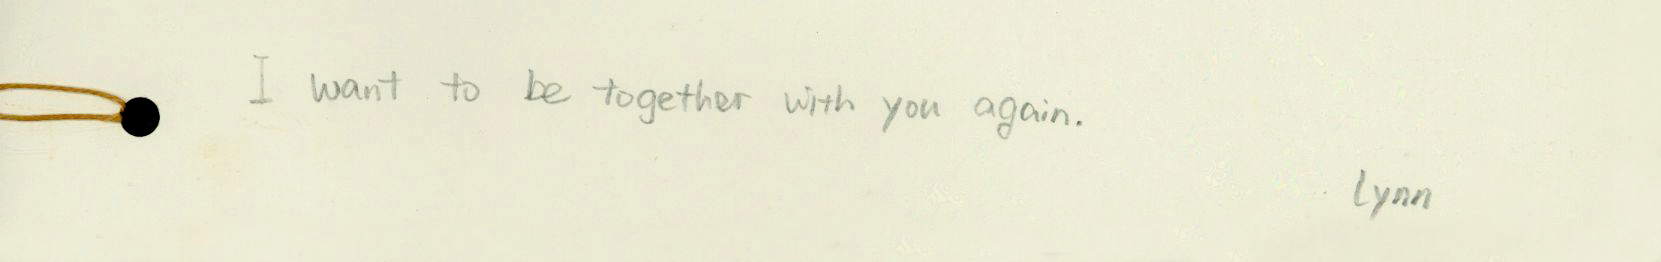 I want to be together with you again.
Lynn